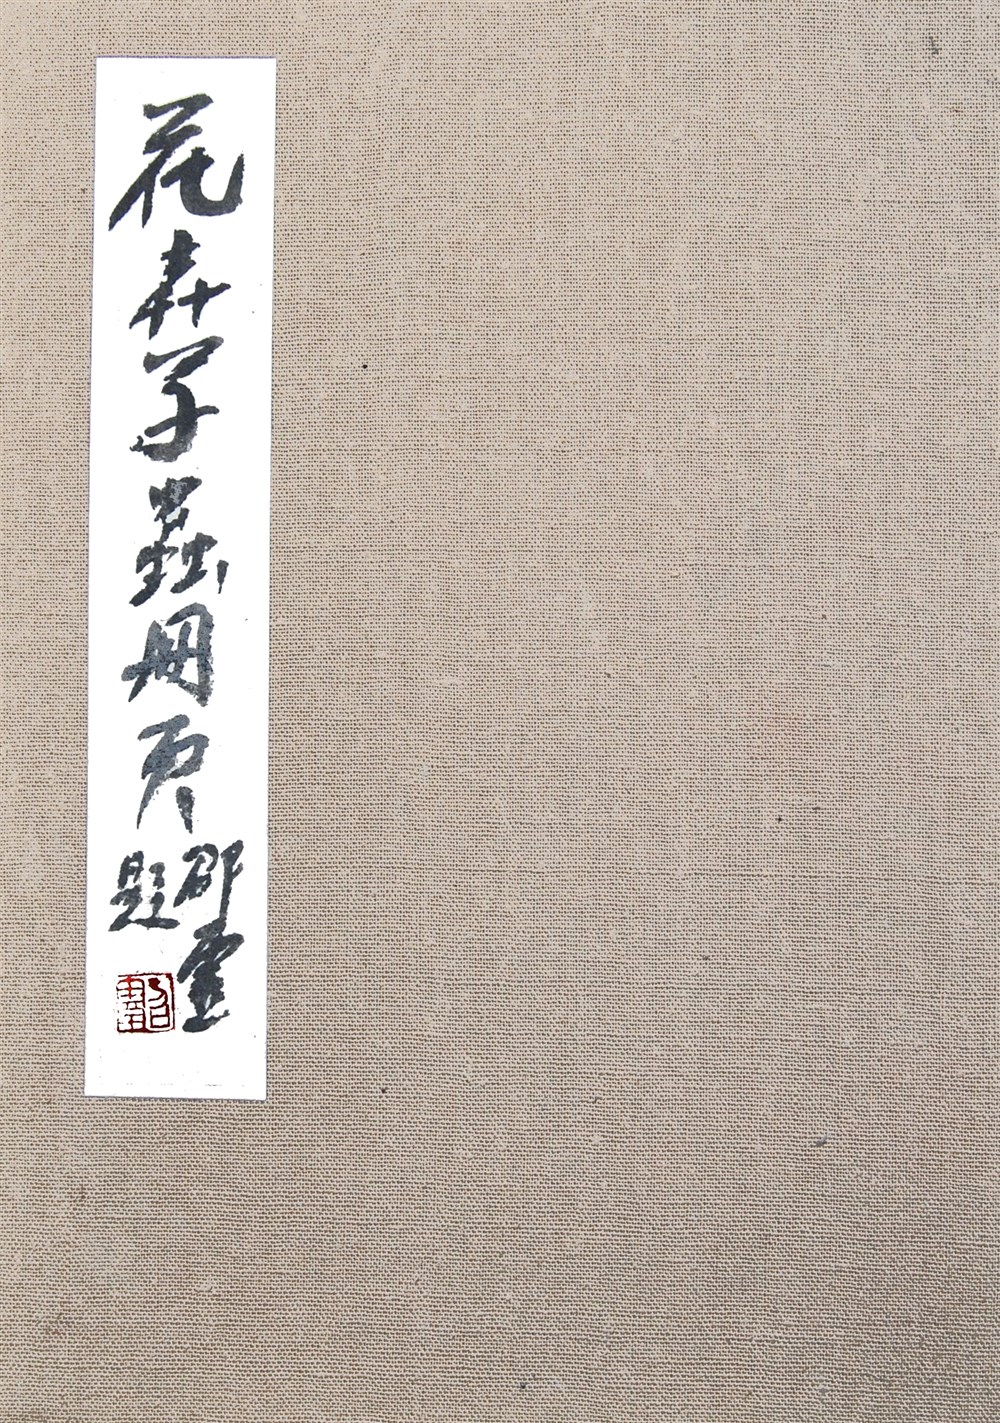 花卉草蟲册页
邵靈
題